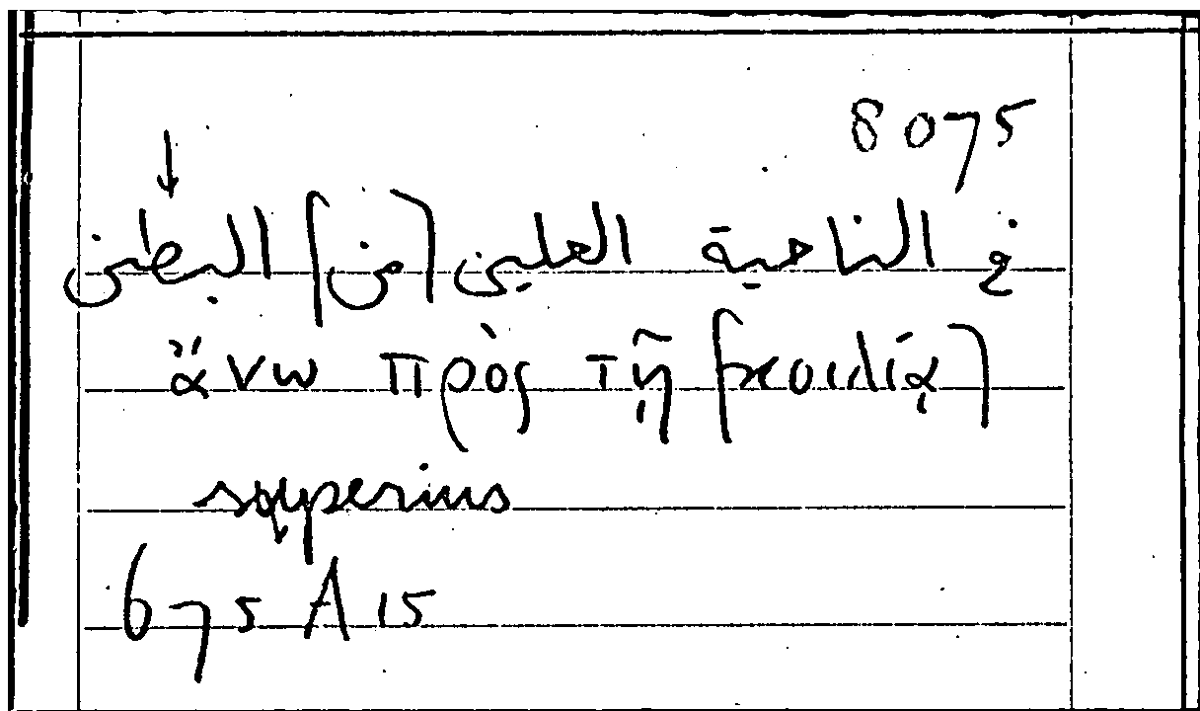 8075
↓
في الناحية العليى (من) البطن
ἄνω πρὸς τῇ (κοιλίᾳ)
superius
675 A 15